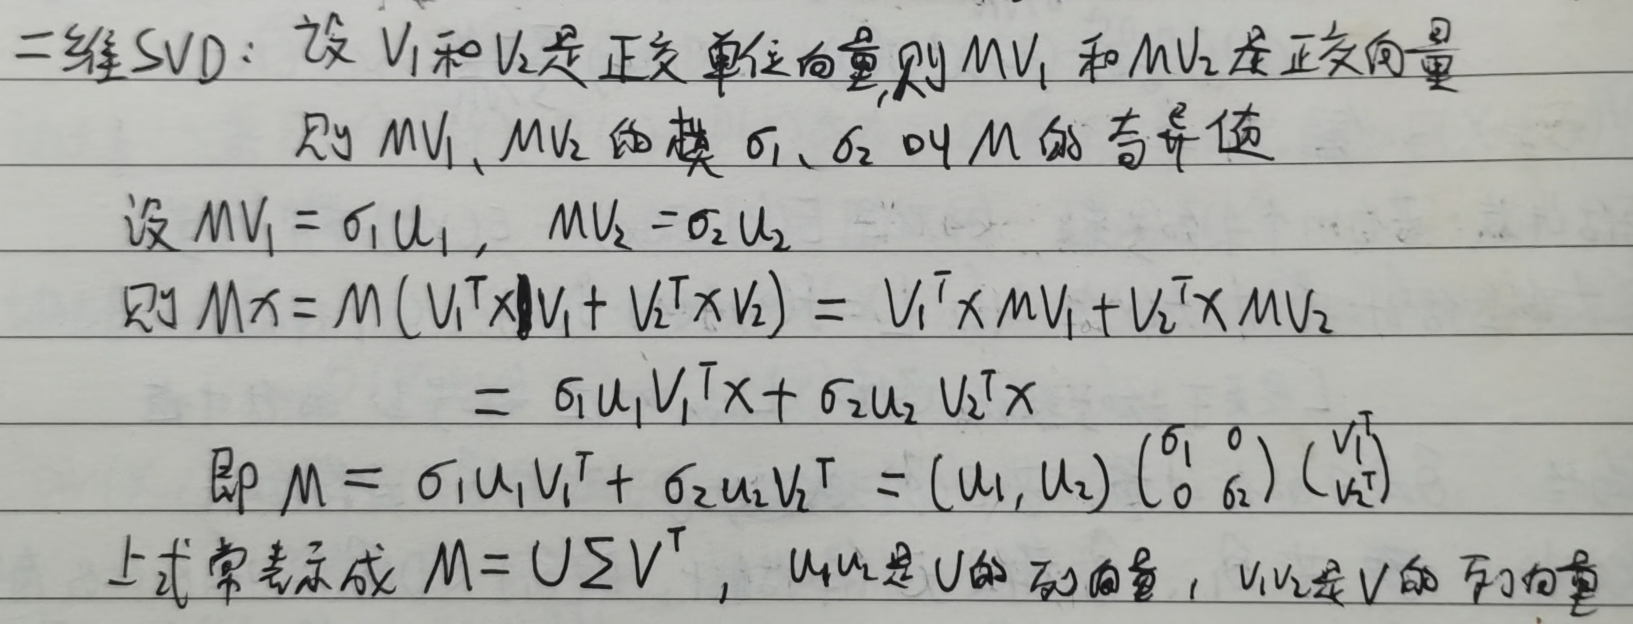 二维SVD: 设 V₁和V₂是正交单位向量,则MV₁ 和MV₂是正交向量
则 MV₁、MV₂ 的模 σ₁、σ₂ 叫 M 的奇异值
设 MV₁ = σ₁u₁, MV₂ = σ₂u₂
则 Mx = M(V₁ᵀx V₁ + V₂ᵀx V₂) = V₁ᵀx MV₁ + V₂ᵀx MV₂
= σ₁u₁V₁ᵀx + σ₂u₂ V₂ᵀx
即 M = σ₁u₁V₁ᵀ + σ₂u₂V₂ᵀ = (u₁, u₂) (σ₁ 0 0 σ₂) (V₁ᵀ V₂ᵀ)
上式常表示成 M = UΣVᵀ, u₁u₂是U的列向量, V₁V₂是V的列向量